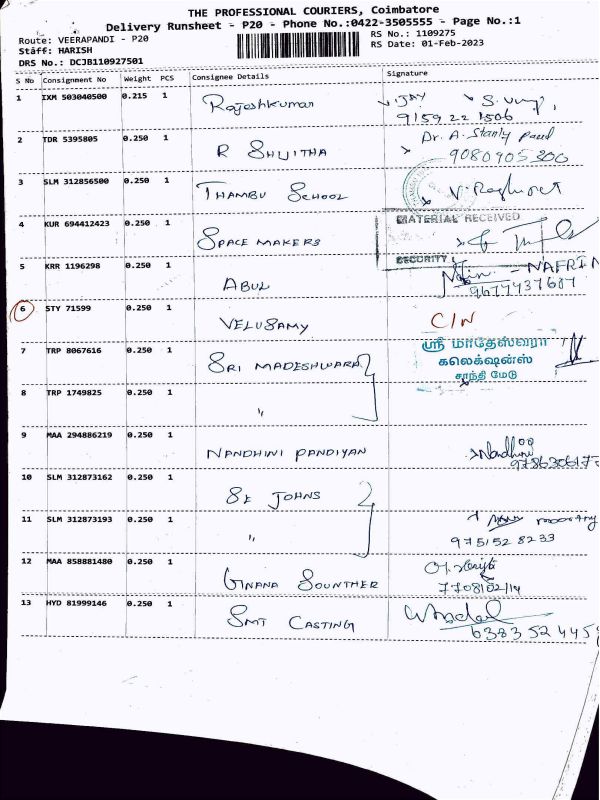 THE PROFESSIONAL COURIERS, Coimbatore
Delivery Runsheet - P20 - Phone No.:0422-3505555 - Page No.:1
Route: VEERAPANDI - P20
RS No.: 1109275
Staff: HARISH
RS Date: 01-Feb-2023
DRS No.: DCJB110927501
S No Consignment No Weight PCS Consignee Details Signature
1 IXM 503040500 0.215 1 Rajeshkumar
VIJAY
9159221506
2 TDR 5395805 0.250 1 R SHIJITHA
Dr. A. Stanly
9080905300
3 SLM 312856500 0.250 1 THAMBU SCHOOL
MATERIAL RECEIVED
4 KUR 694412423 0.250 1 SPACE MAKERS
SECURITY
5 KRR 1196298 0.250 1 ABUL
- NAFRIN
9677437687
6 STY 71599 0.250 1 VELUSAMY C/N
ஸ்ரீ மாதேஸ்வரா
7 TRP 8067616 0.250 1 SRI MADESHWARA
கலெக்ஷன்ஸ்
சாந்தி மேடு
8 TRP 1749825 0.250 1 "
9 MAA 294886219 0.250 1 NANDHINI PANDIYAN
Nandhini
10 SLM 312873162 0.250 1 St JOHNS
11 SLM 312873193 0.250 1 "
9751528233
12 MAA 858881480 0.250 1 GNANA SOUNTHER
13 HYD 81999146 0.250 1 SMT CASTING
638352445